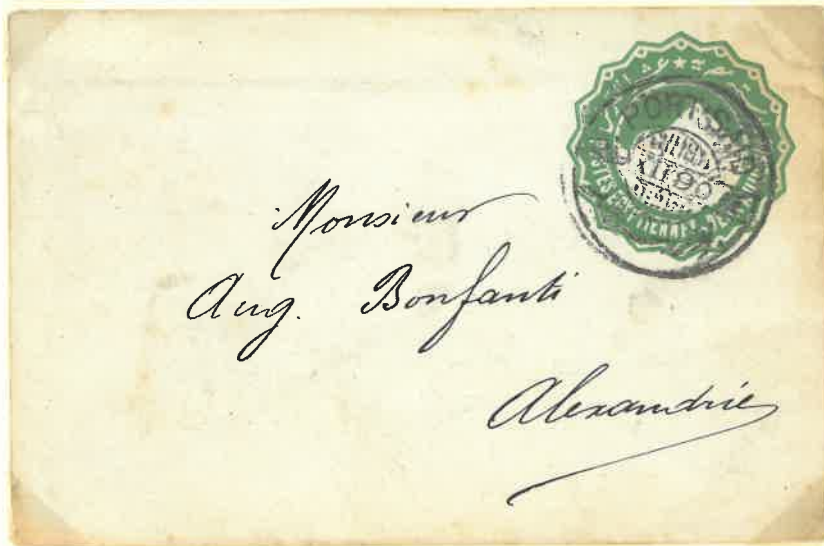 PORT-SAID
XII 90
POSTES EGYPTIENNES
Monsieur
Aug. Bonfanti
Alexandrie